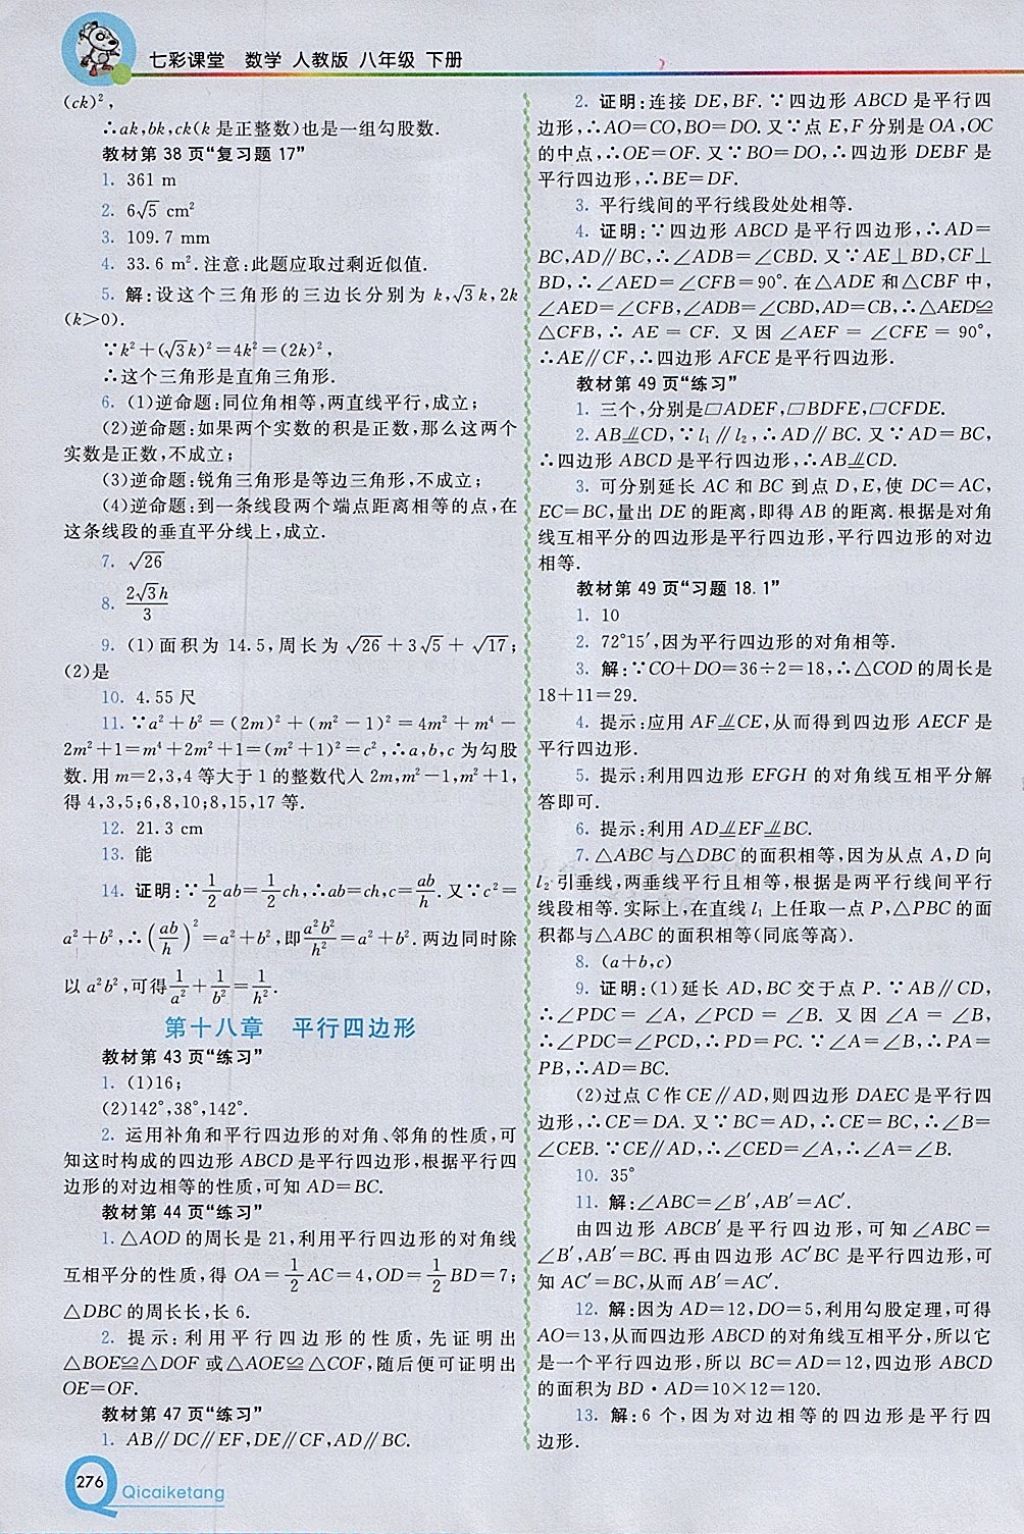 七彩课堂 数学 人教版 八年级 下册
(ck)²,
∴ak,bk,ck(k是正整数)也是一组勾股数.
教材第38页“复习题17”
1. 361 m
2. 6√5 cm²
3. 109.7 mm
4. 33.6 m².注意:此题应取过剩近似值.
5. 解:设这个三角形的三边长分别为 k,√3k,2k
(k>0).
∵k²+(√3k)²=4k²=(2k)²,
∴这个三角形是直角三角形.
6. (1)逆命题:同位角相等,两直线平行,成立;
(2)逆命题:如果两个实数的积是正数,那么这两个
实数是正数,不成立;
(3)逆命题:锐角三角形是等边三角形,不成立;
(4)逆命题:到一条线段两个端点距离相等的点,在
这条线段的垂直平分线上,成立.
7. √26
8. 2√3h/3
9. (1)面积为 14.5,周长为 √26+3√5+√17;
(2)是
10. 4.55 尺
11.∵a²+b²=(2m)²+(m²-1)²=4m²+m⁴-
2m²+1=m⁴+2m²+1=(m²+1)²=c²,∴a,b,c为勾股
数.用m=2,3,4等大于1的整数代入2m,m²-1,m²+1,
得4,3,5;6,8,10;8,15,17等.
12. 21.3 cm
13. 能
14. 证明:∵1/2ab=1/2ch,∴ab=ch,c=ab/h.又∵c²=
a²+b²,∴(ab/h)²=a²+b²,即a²b²/h²=a²+b².两边同时除
以a²b²,可得1/a²+1/b²=1/h².
第十八章 平行四边形
教材第43页“练习”
1. (1)16;
(2)142°,38°,142°.
2. 运用补角和平行四边形的对角、邻角的性质,可
知这时构成的四边形ABCD是平行四边形,根据平行四
边形的对边相等的性质,可知AD=BC.
教材第44页“练习”
1.△AOD的周长是21,利用平行四边形的对角线
互相平分的性质,得 OA=1/2AC=4,OD=1/2BD=7;
△DBC的周长长,长6.
2. 提示:利用平行四边形的性质,先证明出
△BOE≌△DOF或△AOE≌△COF,随后便可证明出
OE=OF.
教材第47页“练习”
1. AB∥DC∥EF,DE∥CF,AD∥BC.
2. 证明:连接 DE,BF.∵四边形 ABCD 是平行四
边形,∴AO=CO,BO=DO.又∵点E,F分别是OA,OC
的中点,∴OE=OF.又∵BO=DO,∴四边形 DEBF 是
平行四边形,∴BE=DF.
3. 平行线间的平行线段处处相等.
4. 证明:∵四边形 ABCD 是平行四边形,∴AD=
BC,AD∥BC,∴∠ADB=∠CBD.又∵AE⊥BD,CF⊥
BD,∴∠AED=∠CFB=90°.在△ADE和△CBF中,
∠AED=∠CFB,∠ADB=∠CBD,AD=CB,∴△AED≌
△CFB,∴AE=CF. 又因∠AEF=∠CFE=90°,
∴AE∥CF,∴四边形AFCE是平行四边形.
教材第49页“练习”
1. 三个,分别是▱ADEF,▱BDFE,▱CFDE.
2.AB⫫CD,∵l₁∥l₂,∴AD∥BC.又∵AD=BC,
∴四边形ABCD是平行四边形,∴AB⫫CD.
3. 可分别延长 AC 和 BC 到点 D,E,使 DC=AC,
EC=BC,量出DE的距离,即得AB的距离.根据是对角
线互相平分的四边形是平行四边形,平行四边形的对边
相等.
教材第49页“习题18.1”
1. 10
2. 72°15′,因为平行四边形的对角相等.
3. 解:∵CO+DO=36÷2=18,∴△COD的周长是
18+11=29.
4. 提示:应用 AF⫫CE,从而得到四边形 AECF 是
平行四边形.
5. 提示:利用四边形 EFGH 的对角线互相平分解
答即可.
6. 提示:利用 AD⫫EF⫫BC.
7.△ABC与△DBC的面积相等,因为从点A,D向
l₂引垂线,两垂线平行且相等,根据是两平行线间平行
线段相等.实际上,在直线l₁上任取一点P,△PBC的面
积都与△ABC的面积相等(同底等高).
8. (a+b,c)
9. 证明:(1)延长 AD,BC 交于点 P.∵AB∥CD,
∴∠PDC=∠A,∠PCD=∠B. 又因∠A=∠B,
∴∠PDC=∠PCD,∴PD=PC.∵∠A=∠B,∴PA=
PB,∴AD=BC.
(2)过点C作CE∥AD,则四边形DAEC是平行四
边形,∴CE=DA.又∵BC=AD,∴CE=BC,∴∠B=
∠CEB.∵CE∥AD,∴∠CED=∠A,∴∠A=∠B.
10. 35°
11. 解:∠ABC=∠B′,AB′=AC′.
由四边形 ABCB′是平行四边形,可知∠ABC=
∠B′,AB′=BC.再由四边形 AC′BC 是平行四边形,可
知AC′=BC,从而AB′=AC′.
12. 解:因为AD=12,DO=5,利用勾股定理,可得
AO=13,从而四边形ABCD的对角线互相平分,所以它
是一个平行四边形,所以 BC=AD=12,四边形 ABCD
的面积为BD·AD=10×12=120.
13. 解:6个,因为对边相等的四边形是平行四
边形.
276
Qicaiketang